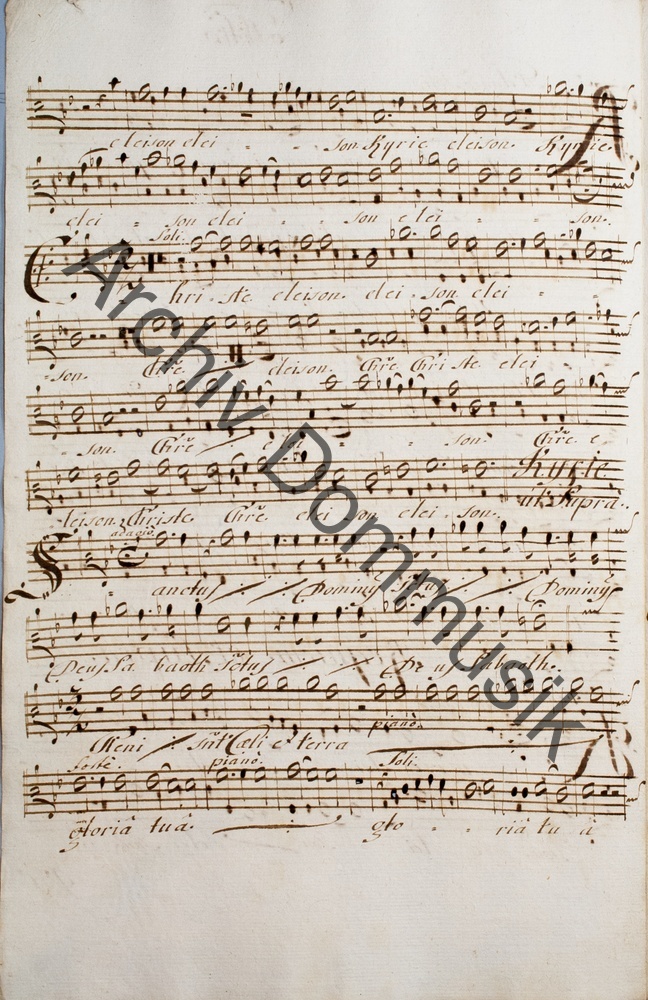 eleison elei - - son. Kyrie eleison. Kyrie.
elei - son elei - - son elei - - son.
Soli.
Christe eleison. elei. son elei -
son. Chr̃e eleison. Chr̃e Christe elei -
son. Chr̃e elei - - son. Chr̃e e
Kyrie
ut supra.
leison. Christe Chr̃e elei son elei. son.
adagio.
Sanctus Dominus Dominus
Deus Sa baoth Deus Sabaoth.
piano.
Pleni Cæli et terra
piano. Soli.
gloria tua. glo - - ria tu a
Archiv Dommusik